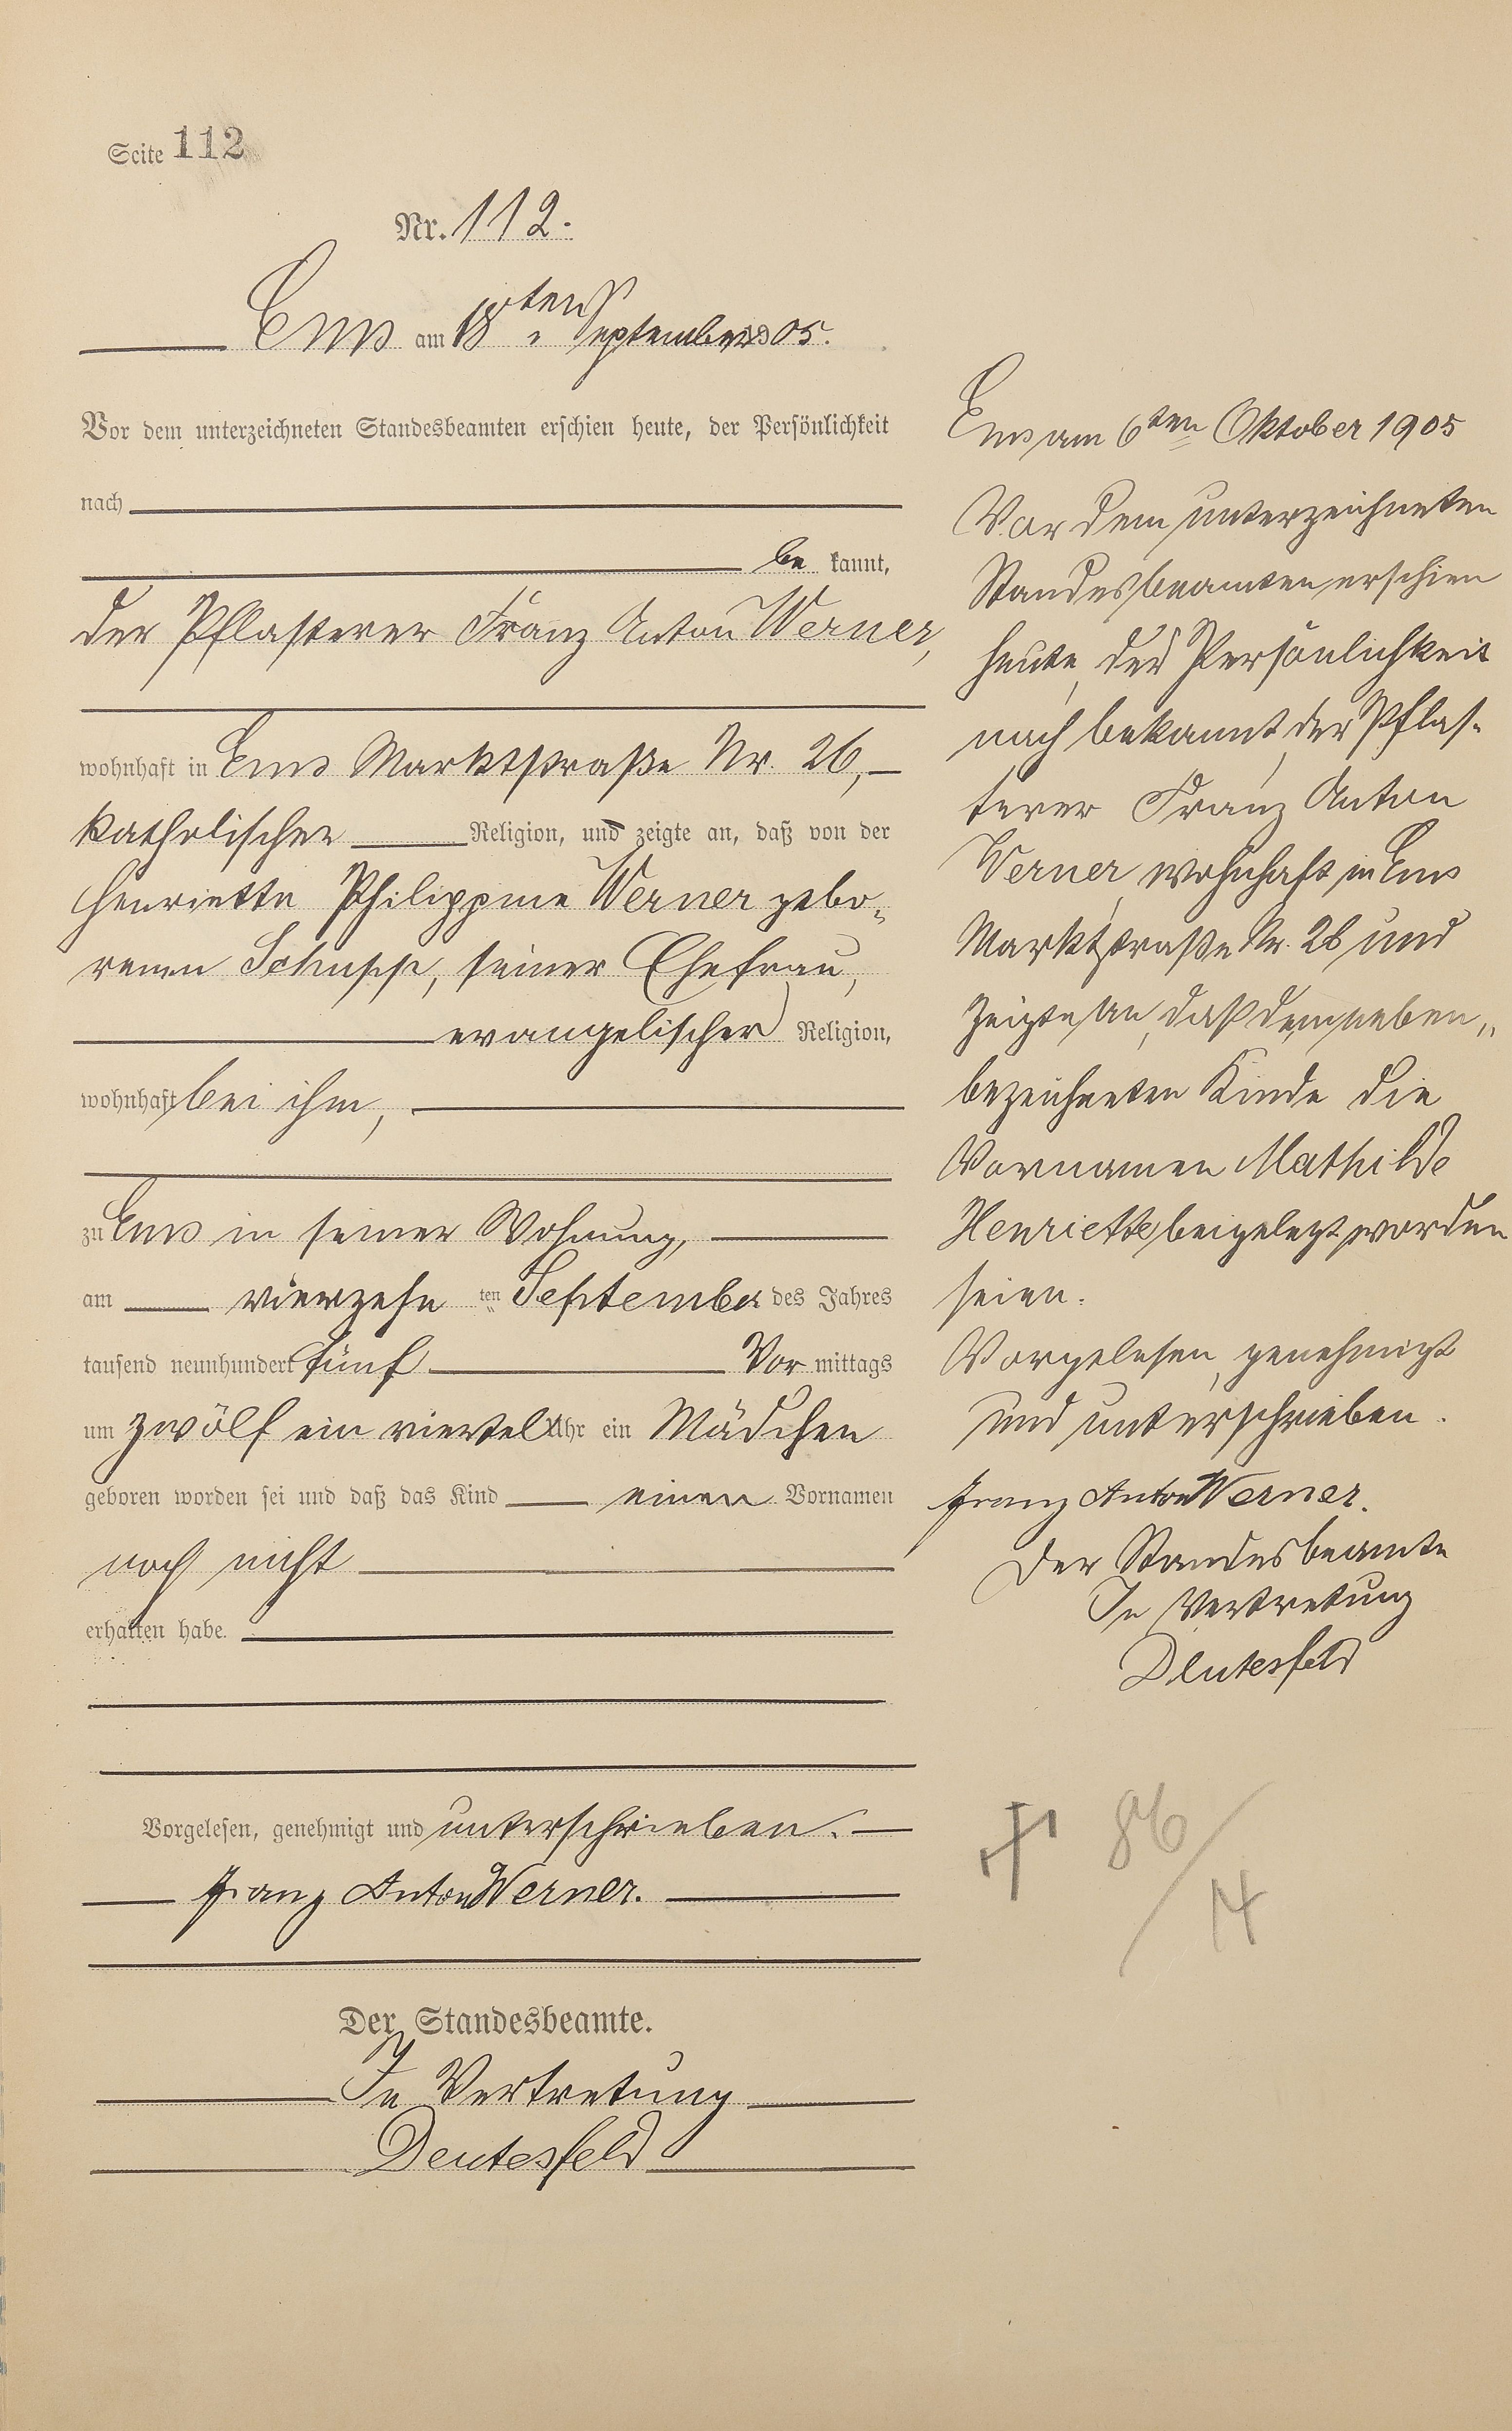 Seite 112
Nr. 112.
Ems am 18ten September 1905.
Vor dem unterzeichneten Standesbeamten erschien heute, der Persönlichkeit
nach
be kannt,
der Pflasterer Franz Anton Werner,
wohnhaft in Ems Marktstraße Nr. 26,
katholischer Religion, und zeigte an, daß von der
Henriette Philippine Werner gebo-
renen Schupp, seiner Ehefrau,
evangelischer Religion,
wohnhaft bei ihm,
zu Ems in seiner Wohnung,
am vierzehn ten September des Jahres
tausend neunhundert fünf Vor mittags
um zwölf ein viertel Uhr ein Mädchen
geboren worden sei und daß das Kind einen Vornamen
noch nicht
erhalten habe.
Vorgelesen, genehmigt und unterschrieben.
Franz Anton Werner.
Der Standesbeamte.
In Vertretung
Deutesfeld
Ems am 6ten Oktober 1905
Vor dem unterzeichneten
Standesbeamten erschien
heute, der Persönlichkeit
nach bekannt, der Pflas-
terer Franz Anton
Werner, wohnhaft in Ems
Marktstraße Nr. 26 und
zeigte an, daß dem neben-
bezeichneten Kinde die
Vornamen Mathilde
Henriette beigelegt worden
seien.
Vorgelesen, genehmigt
und unterschrieben.
Franz Anton Werner.
Der Standesbeamte
In Vertretung
Deutesfeld
† 86/14